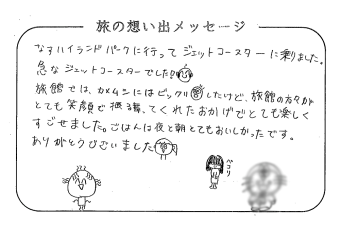 旅の想い出メッセージ
なすハイランドパークに行ってジェットコースターに乗りました。
急なジェットコースターでした!
旅館では、カメムシにはビックリしたけど、旅館の方々が
とても笑顔で接る舞ってくれたおかげでとても楽しく
すごせました。ごはんは夜と朝とてもおいしかったです。
ありがとうございました
ペコリ